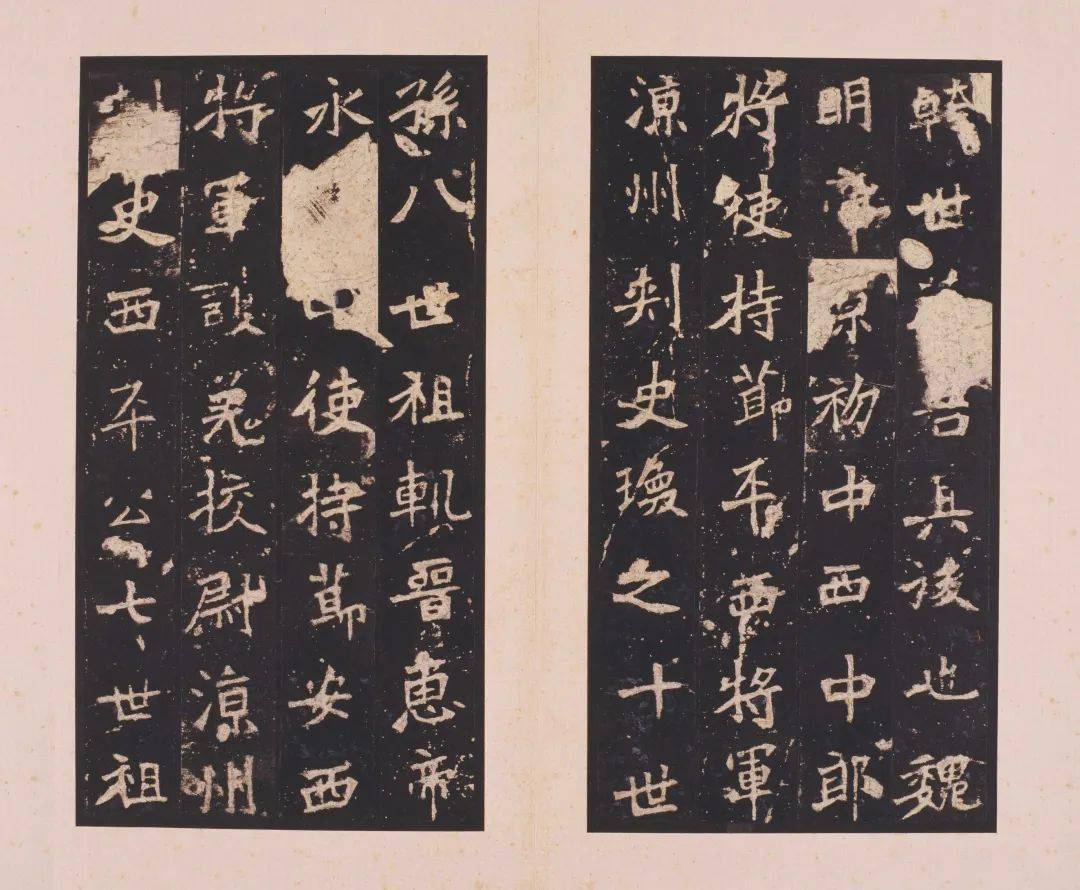 幹世君其後也魏
明帝景初中西中郎
將使持節平西將軍
涼州刺史瑍之十世
孫八世祖軌晉惠帝
永中使持節安西
將軍護羌校尉涼州
史西平公七世祖